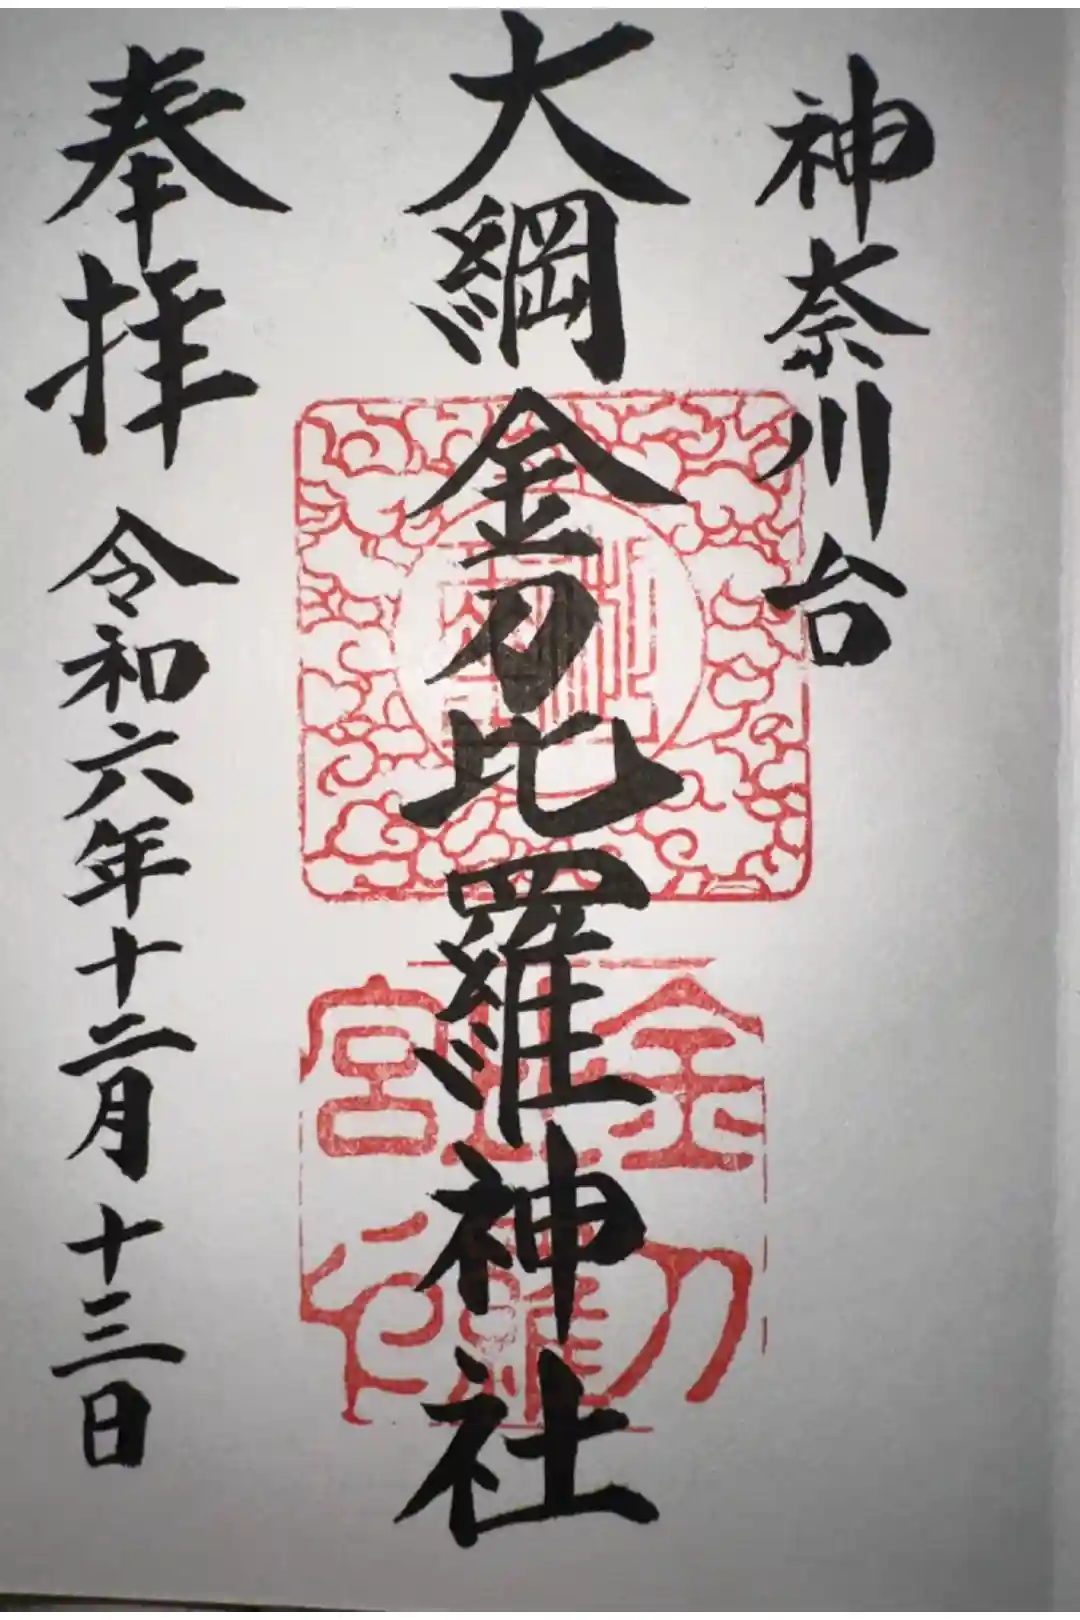 神奈川台
大綱金刀比羅神社
奉拝 令和六年十二月十三日
金刀
羅
宮